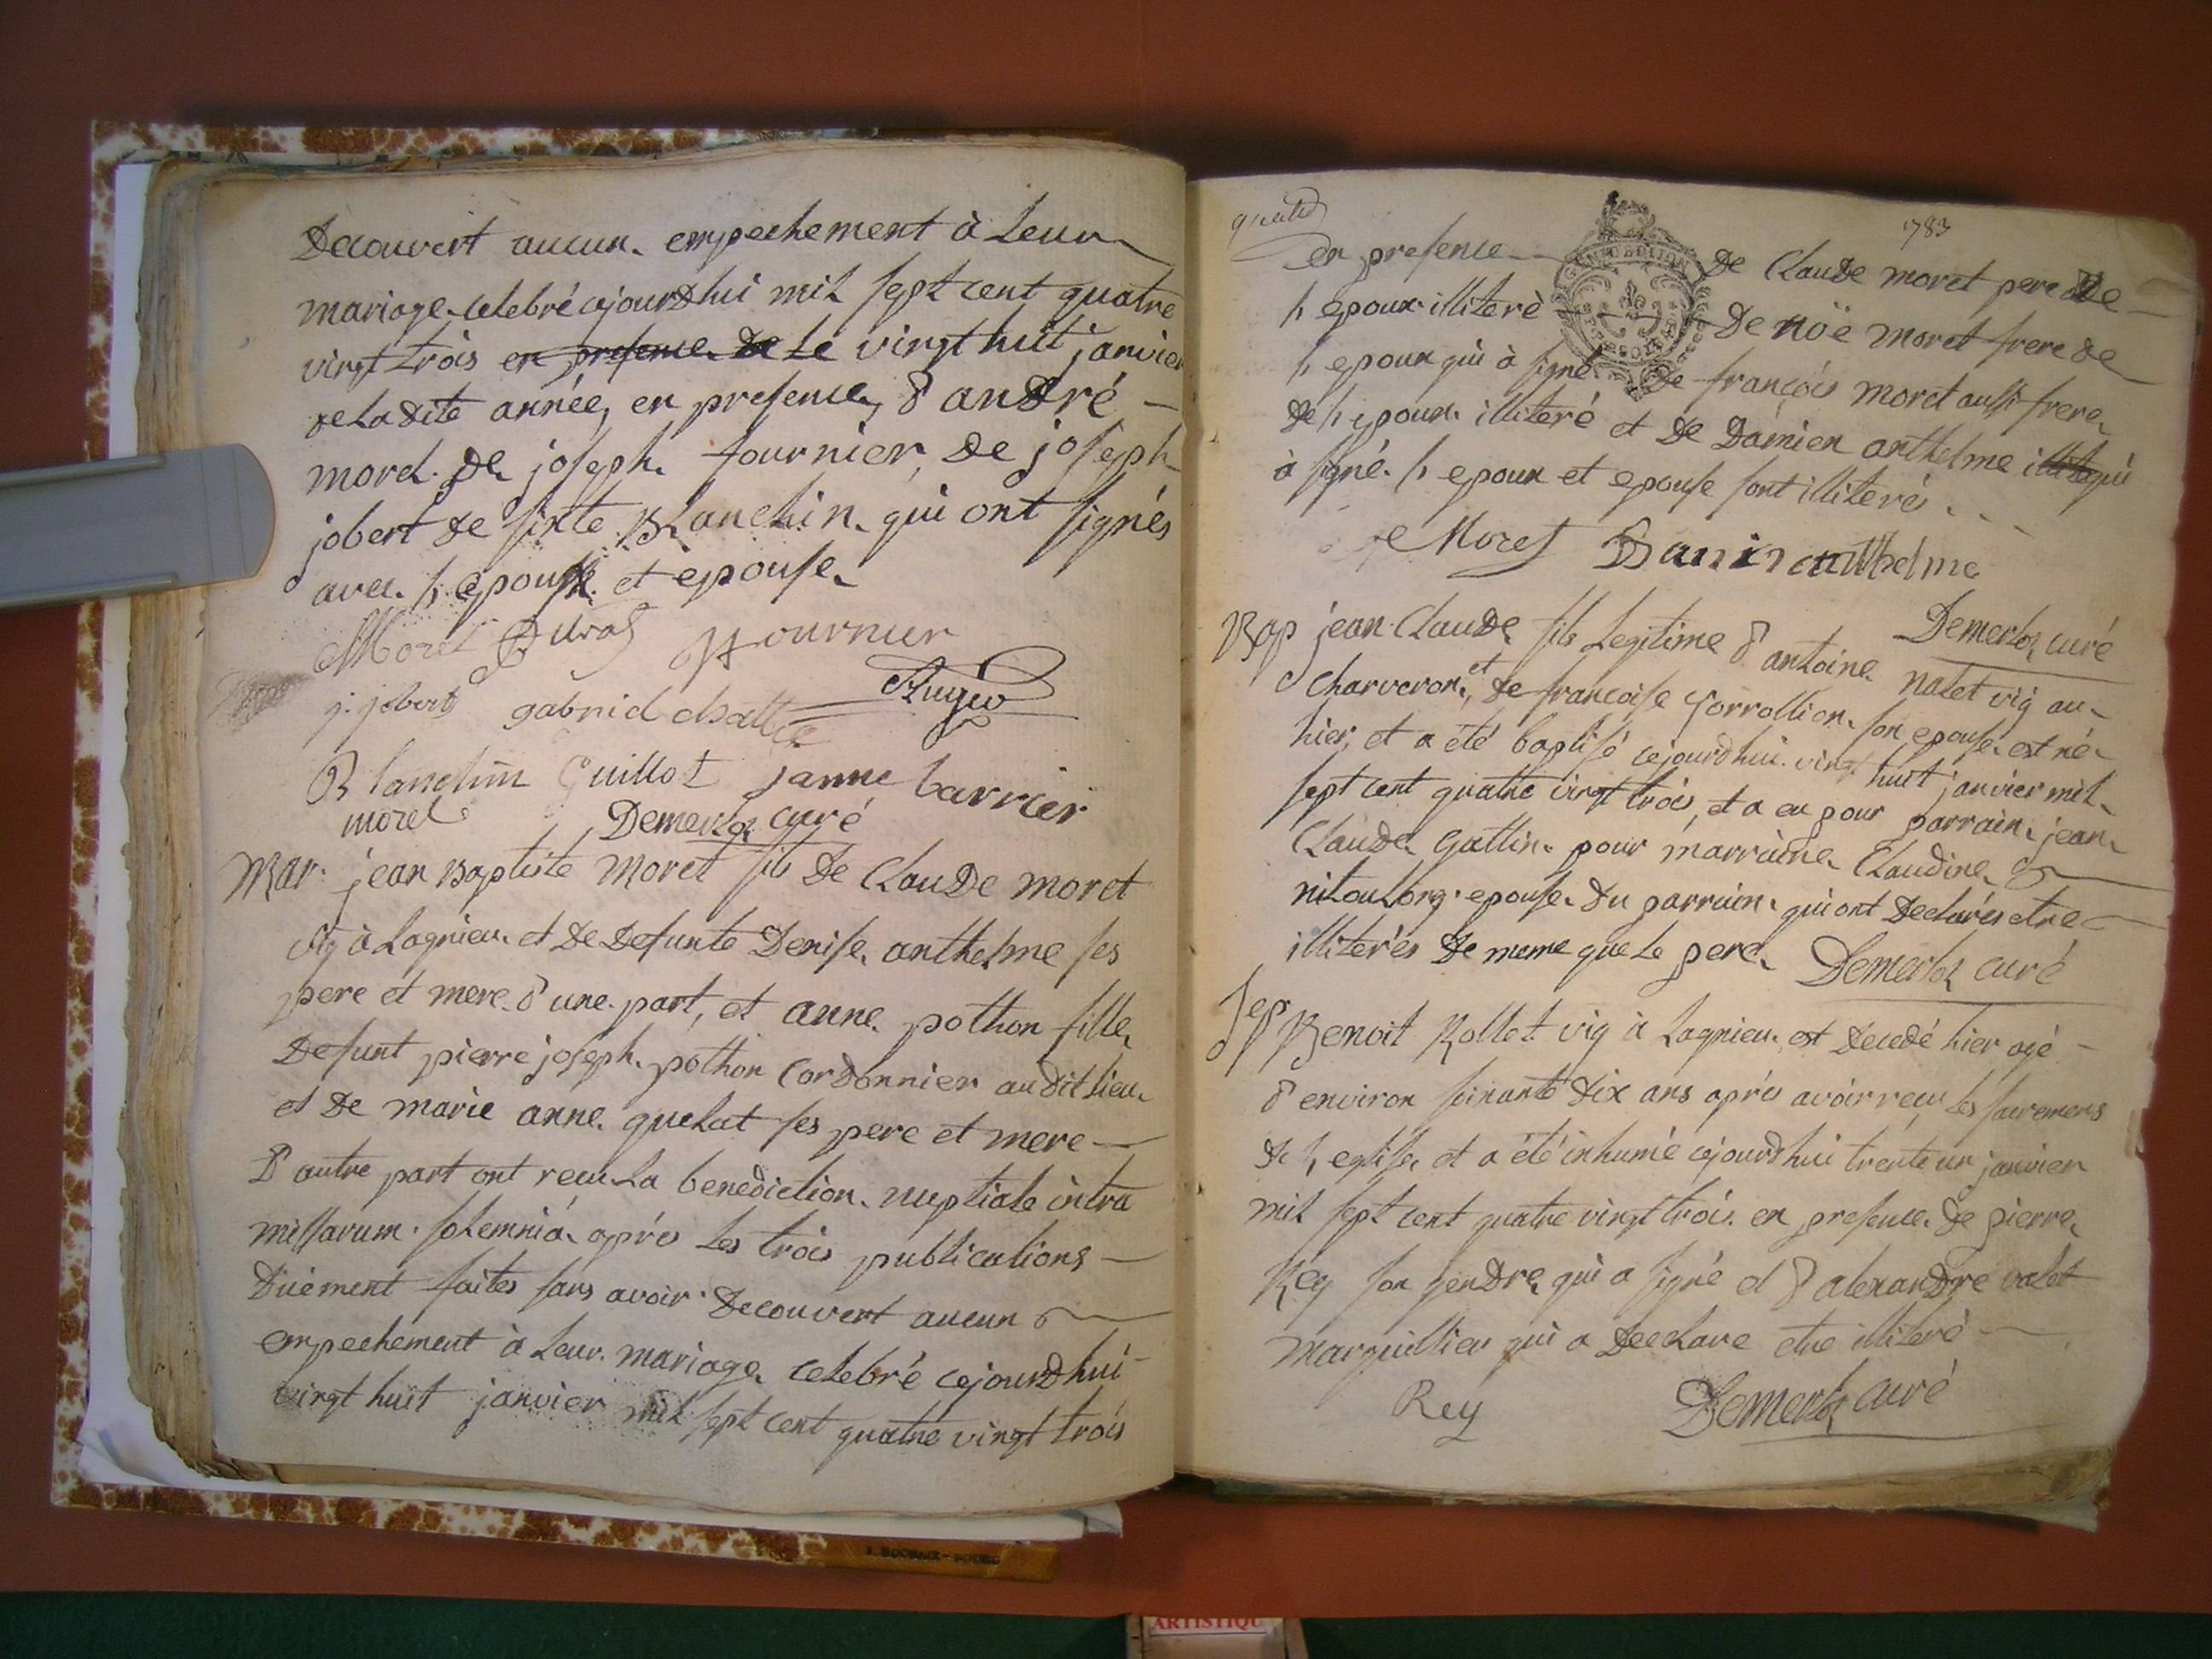 Decouvert aucun empechement à Leur
mariage celebré cejourdhui mil sept cent quatre
vingt trois en presence de Le vingt huit janvier
de La dite année, en presence, d'andré
morel de joseph fournier, de joseph
jobert de sixte Blanchin qui ont signés
avec l'epoux et epouse
Morel Duras fournier
j. jobert gabriel
Blanchin Guillot janne barrier
morel Demerloz curé
Mar. jean Baptiste Moret fils de Claude moret
vig à Lagnieu et De Defunte Denise anthelme ses
pere et mere d'une part, et anne pothon fille
Defunt pierre joseph pothon Cordonnier audit Lieu
et De marie anne quelat ses pere et mere
D'autre part ont recu La benediction nuptiale intra
missarum solemnia après Les trois publications
Duement faites sans avoir Decouvert aucun
empechement à Leur mariage celebré cejourdhui
vingt huit janvier mil sept cent quatre vingt trois
1783
en presence De Claude moret pere De
l'epoux illiteré De noë moret frere de
l'epoux qui à signé De françois moret aussi frere
de l'epoux illiteré et De Damien anthelme qui
à signé. l'epoux et epouse sont illiterés
Moret Damien anthelme
Demerloz curé
Bap jean Claude fils Legitime d'antoine nalet vig au
charveron, et de francoise Gorrollion son epouse est né
hier, et a été baptisé cejourdhui vingt huit janvier mil
sept cent quatre vingt trois, et a eu pour parrain jean
Claude Gattin pour marraine Claudine
epouse du parrain qui ont Declarés etre
illiterés De meme que Le pere Demerloz curé
Sep Benoit Rollet vig à Lagnieu est Decedé hier agé
d'environ soixante dix ans après avoir recu les sacremens
de l'eglise et a été inhumé cejourdhui trente un janvier
mil sept cent quatre vingt trois en presence de pierre
Rey son gendre qui a signé et d'alexandre valet
marguillier qui a Declare etre illiteré
Rey Demerloz curé
ARTISTIQU